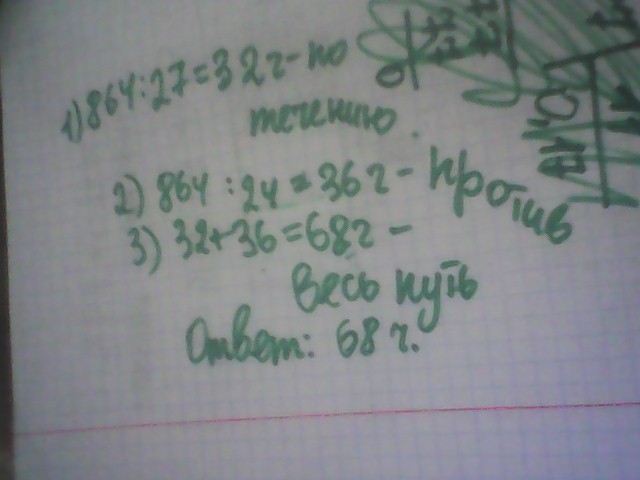 1) 864:27=32 ч - по
течению.
2) 864 : 24 = 36 ч - против
3) 32+36=68 ч -
весь путь
Ответ: 68 ч.